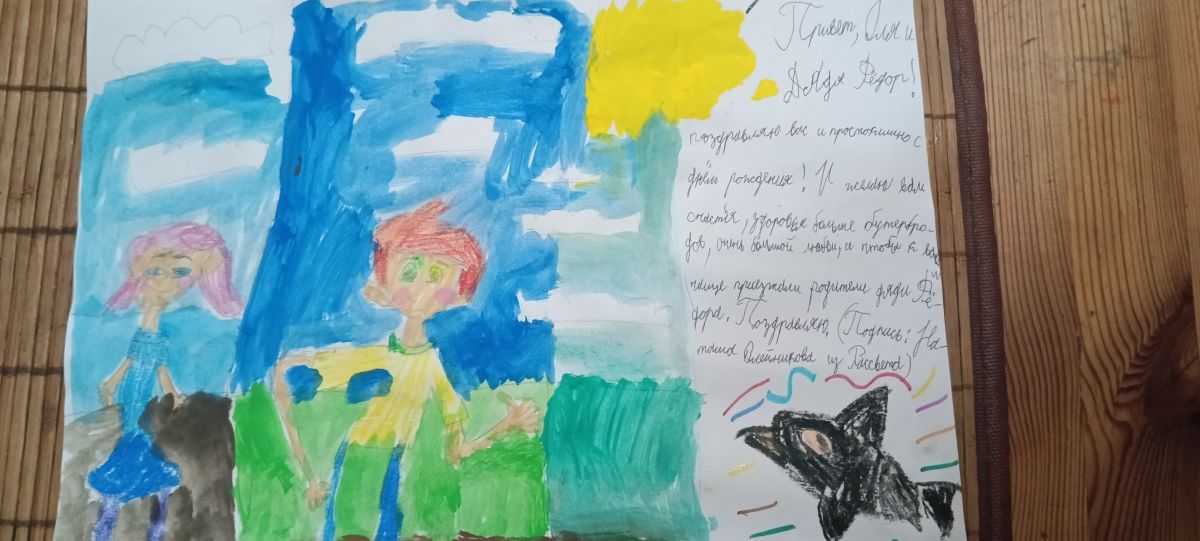 Привет, Оля и
ДЯдя Фёдор!
поздравляю вас и простоквашино с
днём рождения! И желаю вам
счастья, здоровья больше бутербро-
дов, очень большой любви, и чтобы к вам
чаще приезжали родители дяди Фё-
дора. Поздравляю. (Подпись: На-
таша Олейникова из Рассвета)